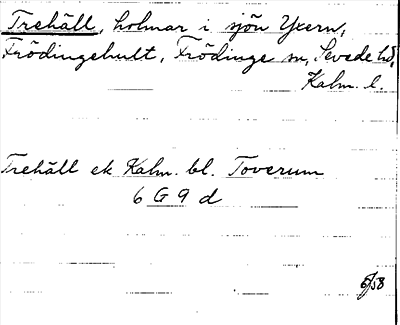 Trehäll, holmar i sjön Yxern,
Frödingehult, Frödinge sn, Sevede hd,
Kalm. l.
Trehäll ek Kalm. bl. Toverum
6 G 9 d
6/58